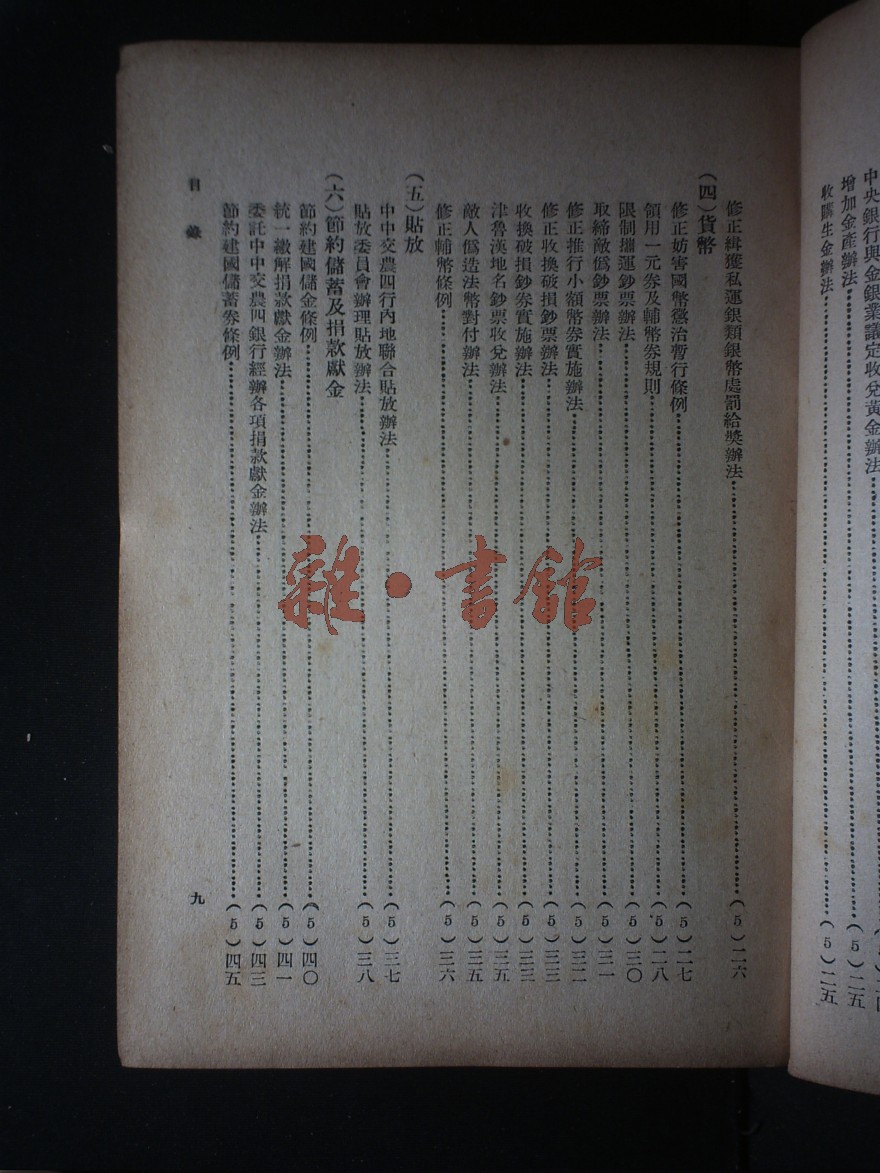 中央銀行與金銀業議定收兌黃金辦法
增加金產辦法……（5）二五
收購生金辦法……（5）二五
修正緝獲私運銀類銀幣處罰給獎辦法……（5）二六
（四）貨幣
修正妨害國幣懲治暫行條例……（5）二七
領用一元券及輔幣券規則……（5）二八
限制攜運鈔票辦法……（5）三〇
取締敵僞鈔票辦法……（5）三一
修正推行小額幣券實施辦法……（5）三二
修正收換破損鈔票辦法……（5）三三
收換破損鈔券實施辦法……（5）三三
津魯漢地名鈔票收兌辦法……（5）三五
敵人僞造法幣對付辦法……（5）三五
修正輔幣條例……（5）三六
（五）貼放
中中交農四行內地聯合貼放辦法……（5）三七
貼放委員會辦理貼放辦法……（5）三八
（六）節約儲蓄及捐款獻金
節約建國儲金條例……（5）四〇
統一繳解捐款獻金辦法……（5）四一
委託中中交農四銀行經辦各項捐款獻金辦法……（5）四三
節約建國儲蓄券條例……（5）四五
目錄
九
雜·書館